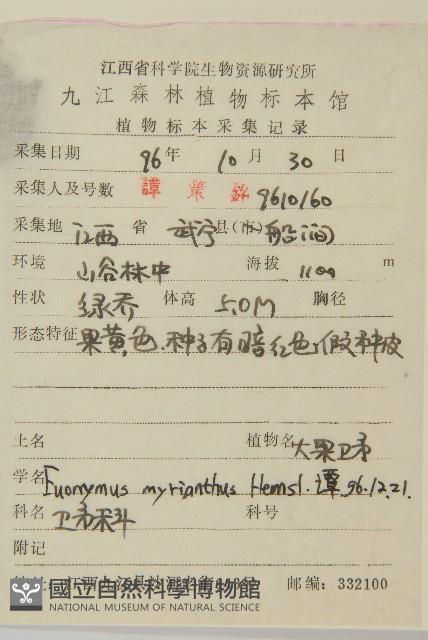 江西省科学院生物资源研究所
九江森林植物标本馆
植物标本采集记录
采集日期 96年 10月 30日
采集人及号数 譚策銘 9610160
采集地 江西 省 武宁 县(市) 船
环境 山谷林中 海拔 1100 m
性状 绿乔 体高 5.0M 胸径
形态特征 果黄色,种子有暗红色假种皮
土名 植物名 大果卫矛
学名 Euonymus myrianthus Hemsl. 譚 96.12.21.
科名 卫矛科 科号
附记
江西九江县 邮编: 332100
國立自然科學博物館
NATIONAL MUSEUM OF NATURAL SCIENCE